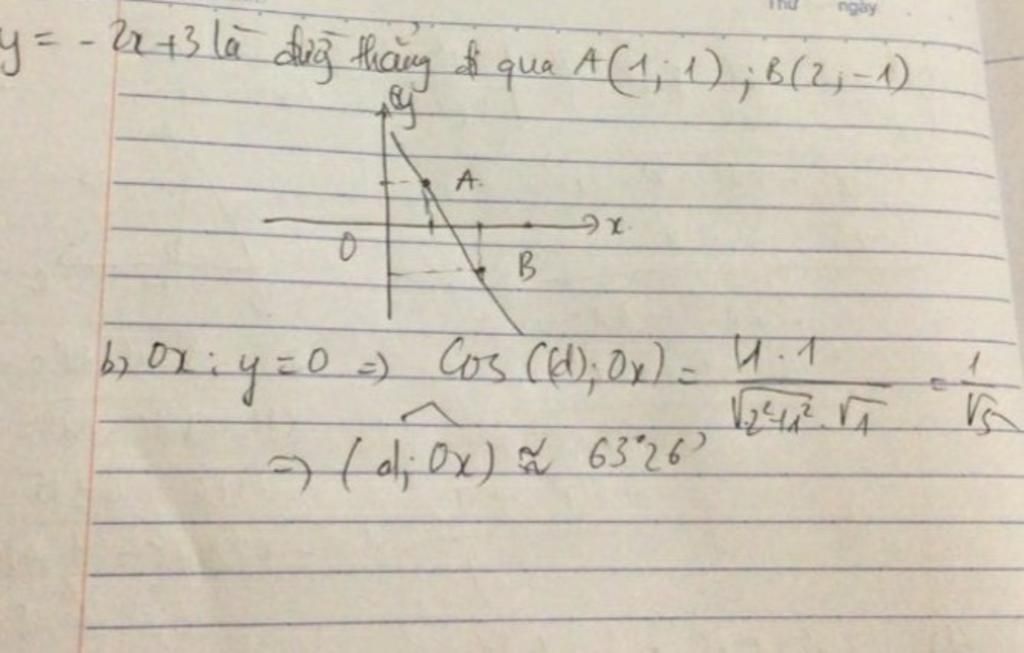 Thứ ngày
y = - 2x + 3 là đường thẳng đi qua A(1; 1) ; B(2; -1)
y
A
x
O
B
b) Ox : y = 0 => Cos ((d); Ox) = 1.1 / √2²+1² . √1 = 1/√5
=> (d; Ox) ≈ 63°26'